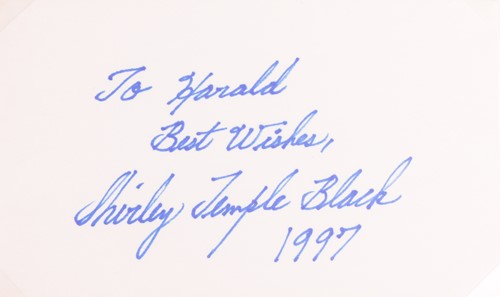 To Harald
Best Wishes,
Shirley Temple Black
1997